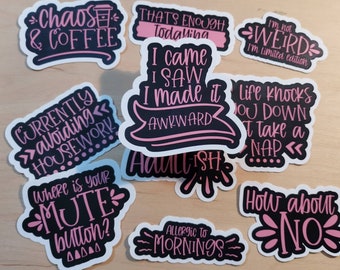 CHAOS
& COFFEE
THAT'S ENOUGH
TODAYING
I'm not
WEIRD
I'm limited edition
I CAME
I SAW
I MADE IT
AWKWARD
CURRENTLY
avoiding
HOUSEWORK
LIFE KNOCKS
YOU DOWN
TAKE A
NAP
ADULT-ISH
WHERE IS YOUR
MUTE
button?
ALLERGIC TO
MORNINGS
HOW about
NO